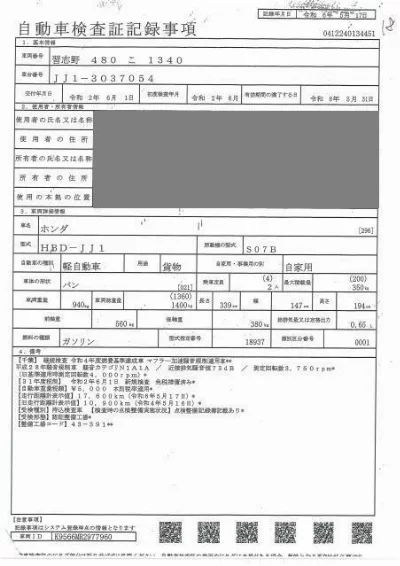 記録年月日 令和 6年 5月17日
自動車検査証記録事項
0412240134451
1. 基本情報
車両番号 習志野 480 こ 1340
車台番号 JJ1-3037054
交付年月日 令和 2年 6月 1日 初度検査年月 令和 2年 6月 有効期間の満了する日 令和 8年 5月 31日
2. 使用者・所有者情報
使用者の氏名又は名称
使用者の住所
所有者の氏名又は名称
所有者の住所
使用の本拠の位置
3. 車両詳細情報
車名 ホンダ [296]
型式 HBD-JJ1 原動機の型式 S07B
自動車の種別 軽自動車 用途 貨物 自家用・事業用の別 自家用
車体の形状 バン [021] 乗車定員 (4) 2人 最大積載量 (200) 350kg
車両重量 940kg 車両総重量 (1360) 1400kg 長さ 339cm 幅 147cm 高さ 194cm
前軸重 560kg 後軸重 380kg 総排気量又は定格出力 0.65 L
燃料の種類 ガソリン 型式指定番号 18937 類別区分番号 0001
4. 備考
【千葉】 継続検査 令和4年度燃費基準達成車 マフラー加速騒音規制適用車**
平成28年騒音規制車 騒音カテゴリN1A1A / 近接排気騒音値73dB / 測定回転数3,750rpm)*
(旧基準適用時測定回転数4,000rpm)*
【31年度税制】 令和2年6月1日 新規検査 免税措置済み*
【自動車重量税額】 ¥5,000 本則税率適用*
【走行距離計表示値】 17,600km (令和6年5月17日)*
【旧走行距離計表示値】 10,900km (令和4年5月16日)
【受検種別】 持込検査車 【検査時の点検整備実施状況】 点検整備記録簿記載あり*
【受検形態】 認証整備工場*
【整備工場コード】 43-391**
【注意事項】
記録事項はシステム登録時点の情報となります
車両ID K9566NR2977960